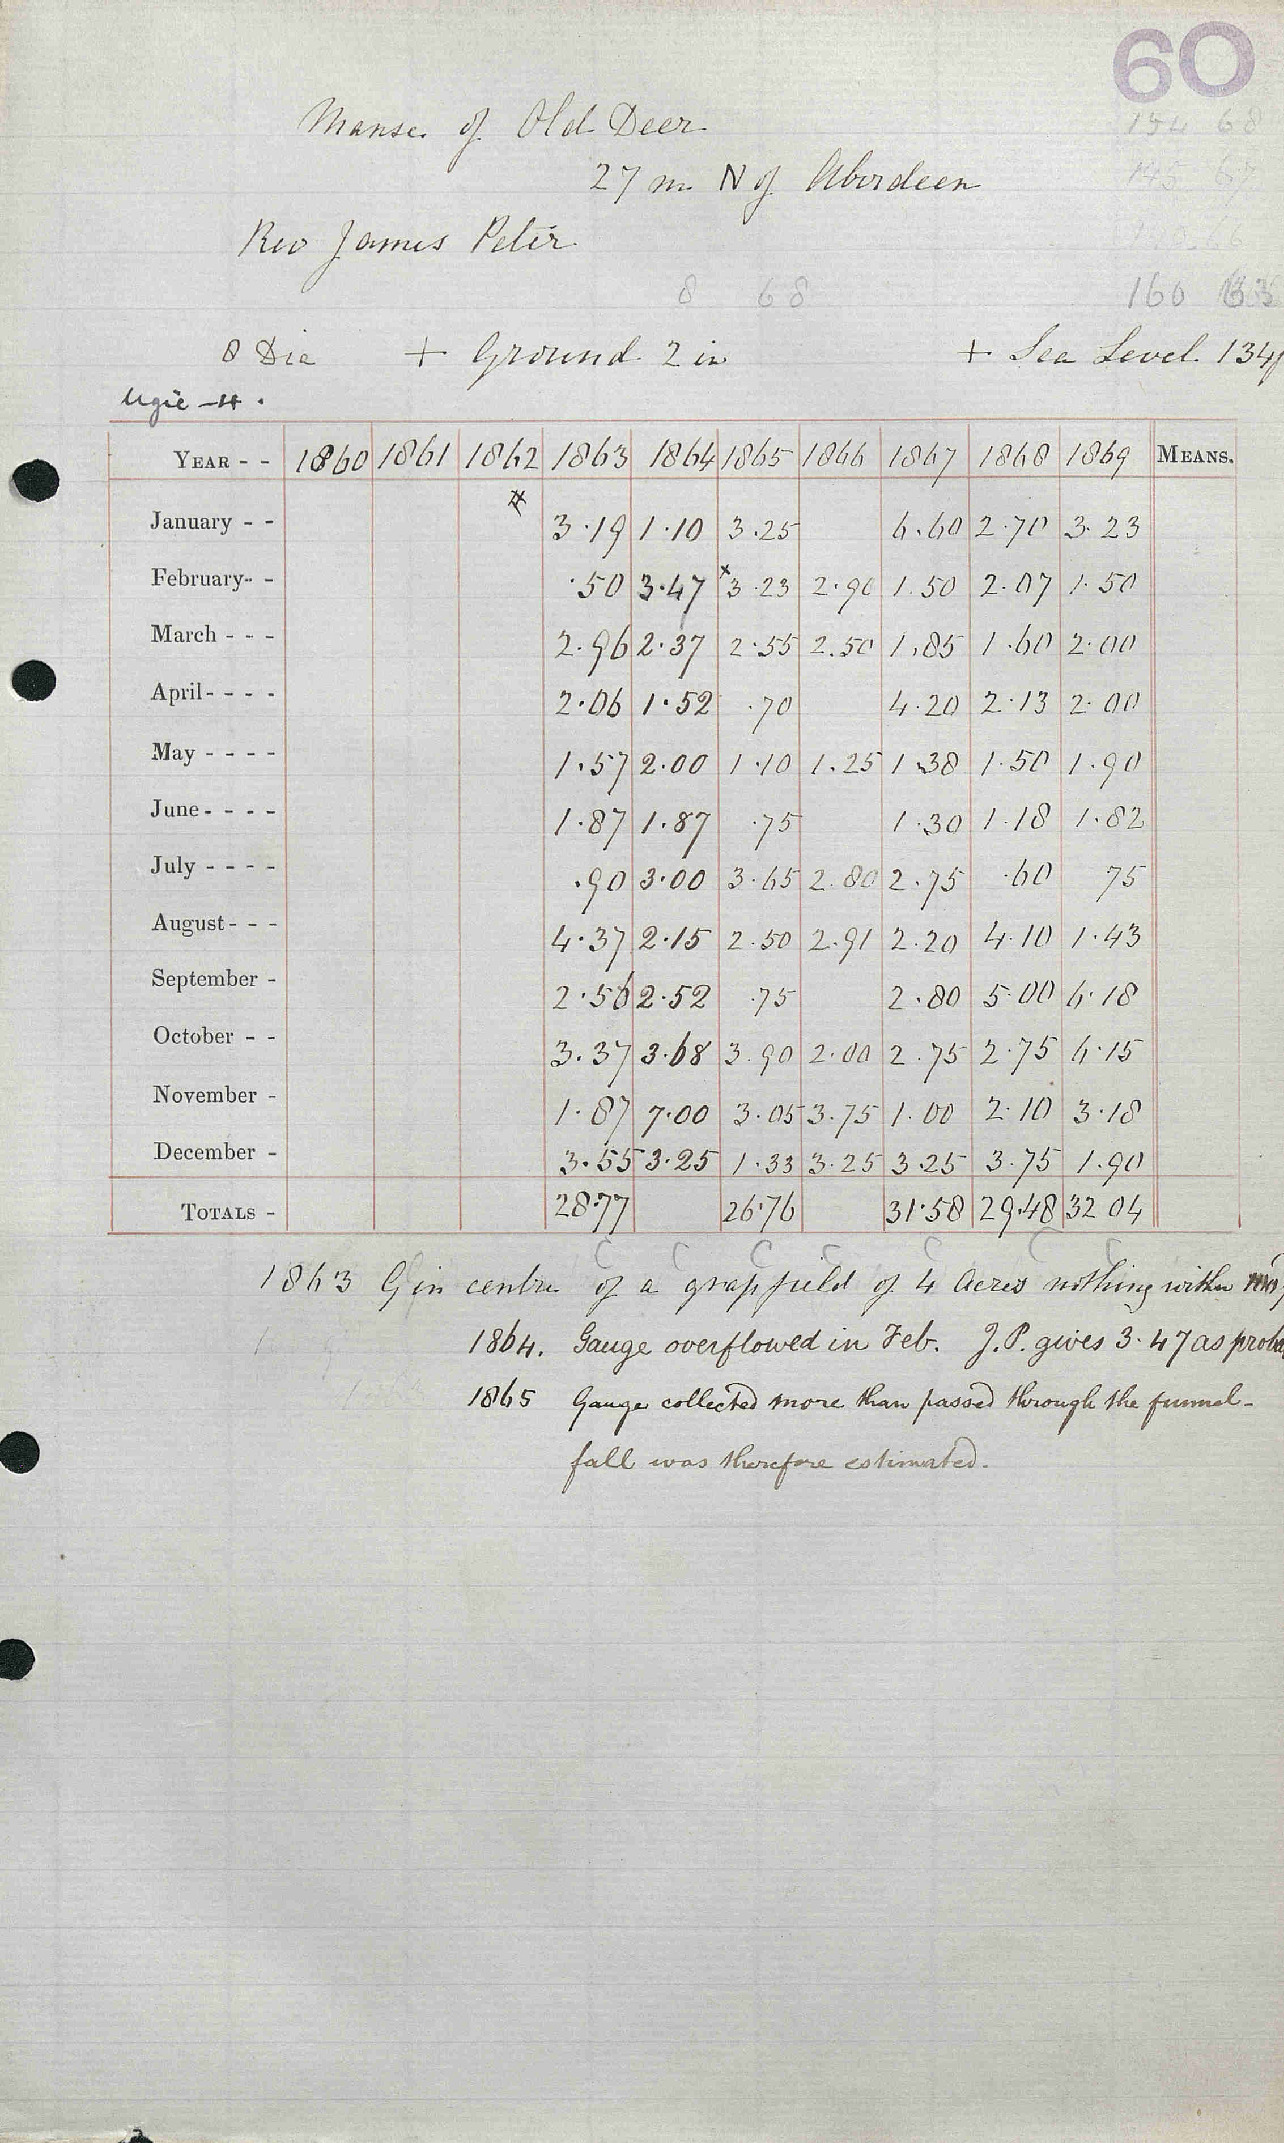 60
154 68
145 67
Manse of Old Deer
27 m N of Aberdeen
Rev James Peter
8 68 160
8 Dia + Ground 2 in + Sea Level 134
Ugie - H.
YEAR - - 1860 1861 1862 1863 1864 1865 1866 1867 1868 1869 MEANS.
January - - 3.19 1.10 3.25 6.60 2.70 3.23
February - - .50 3.47 x3.23 2.90 1.50 2.07 1.50
March - - - 2.96 2.37 2.55 2.50 1.85 1.60 2.00
April - - - - 2.06 1.52 .70 4.20 2.13 2.00
May - - - - 1.57 2.00 1.10 1.25 1.38 1.50 1.90
June - - - - 1.87 1.87 .75 1.30 1.18 1.82
July - - - - .90 3.00 3.65 2.80 2.75 .60 75
August - - - 4.37 2.15 2.50 2.91 2.20 4.10 1.43
September - 2.56 2.52 .75 2.80 5.00 6.18
October - - 3.37 3.68 3.90 2.00 2.75 2.75 6.15
November - 1.87 7.00 3.05 3.75 1.00 2.10 3.18
December - 3.55 3.25 1.33 3.25 3.25 3.75 1.90
TOTALS - 28.77 26.76 31.58 29.48 32 04
1863 G in centre of a grass field of 4 Acres nothing within
1864. Gauge overflowed in Feb. J.P. gives 3.47 as proba
1865 Gauge collected more than passed through the funnel -
fall was therefore estimated.